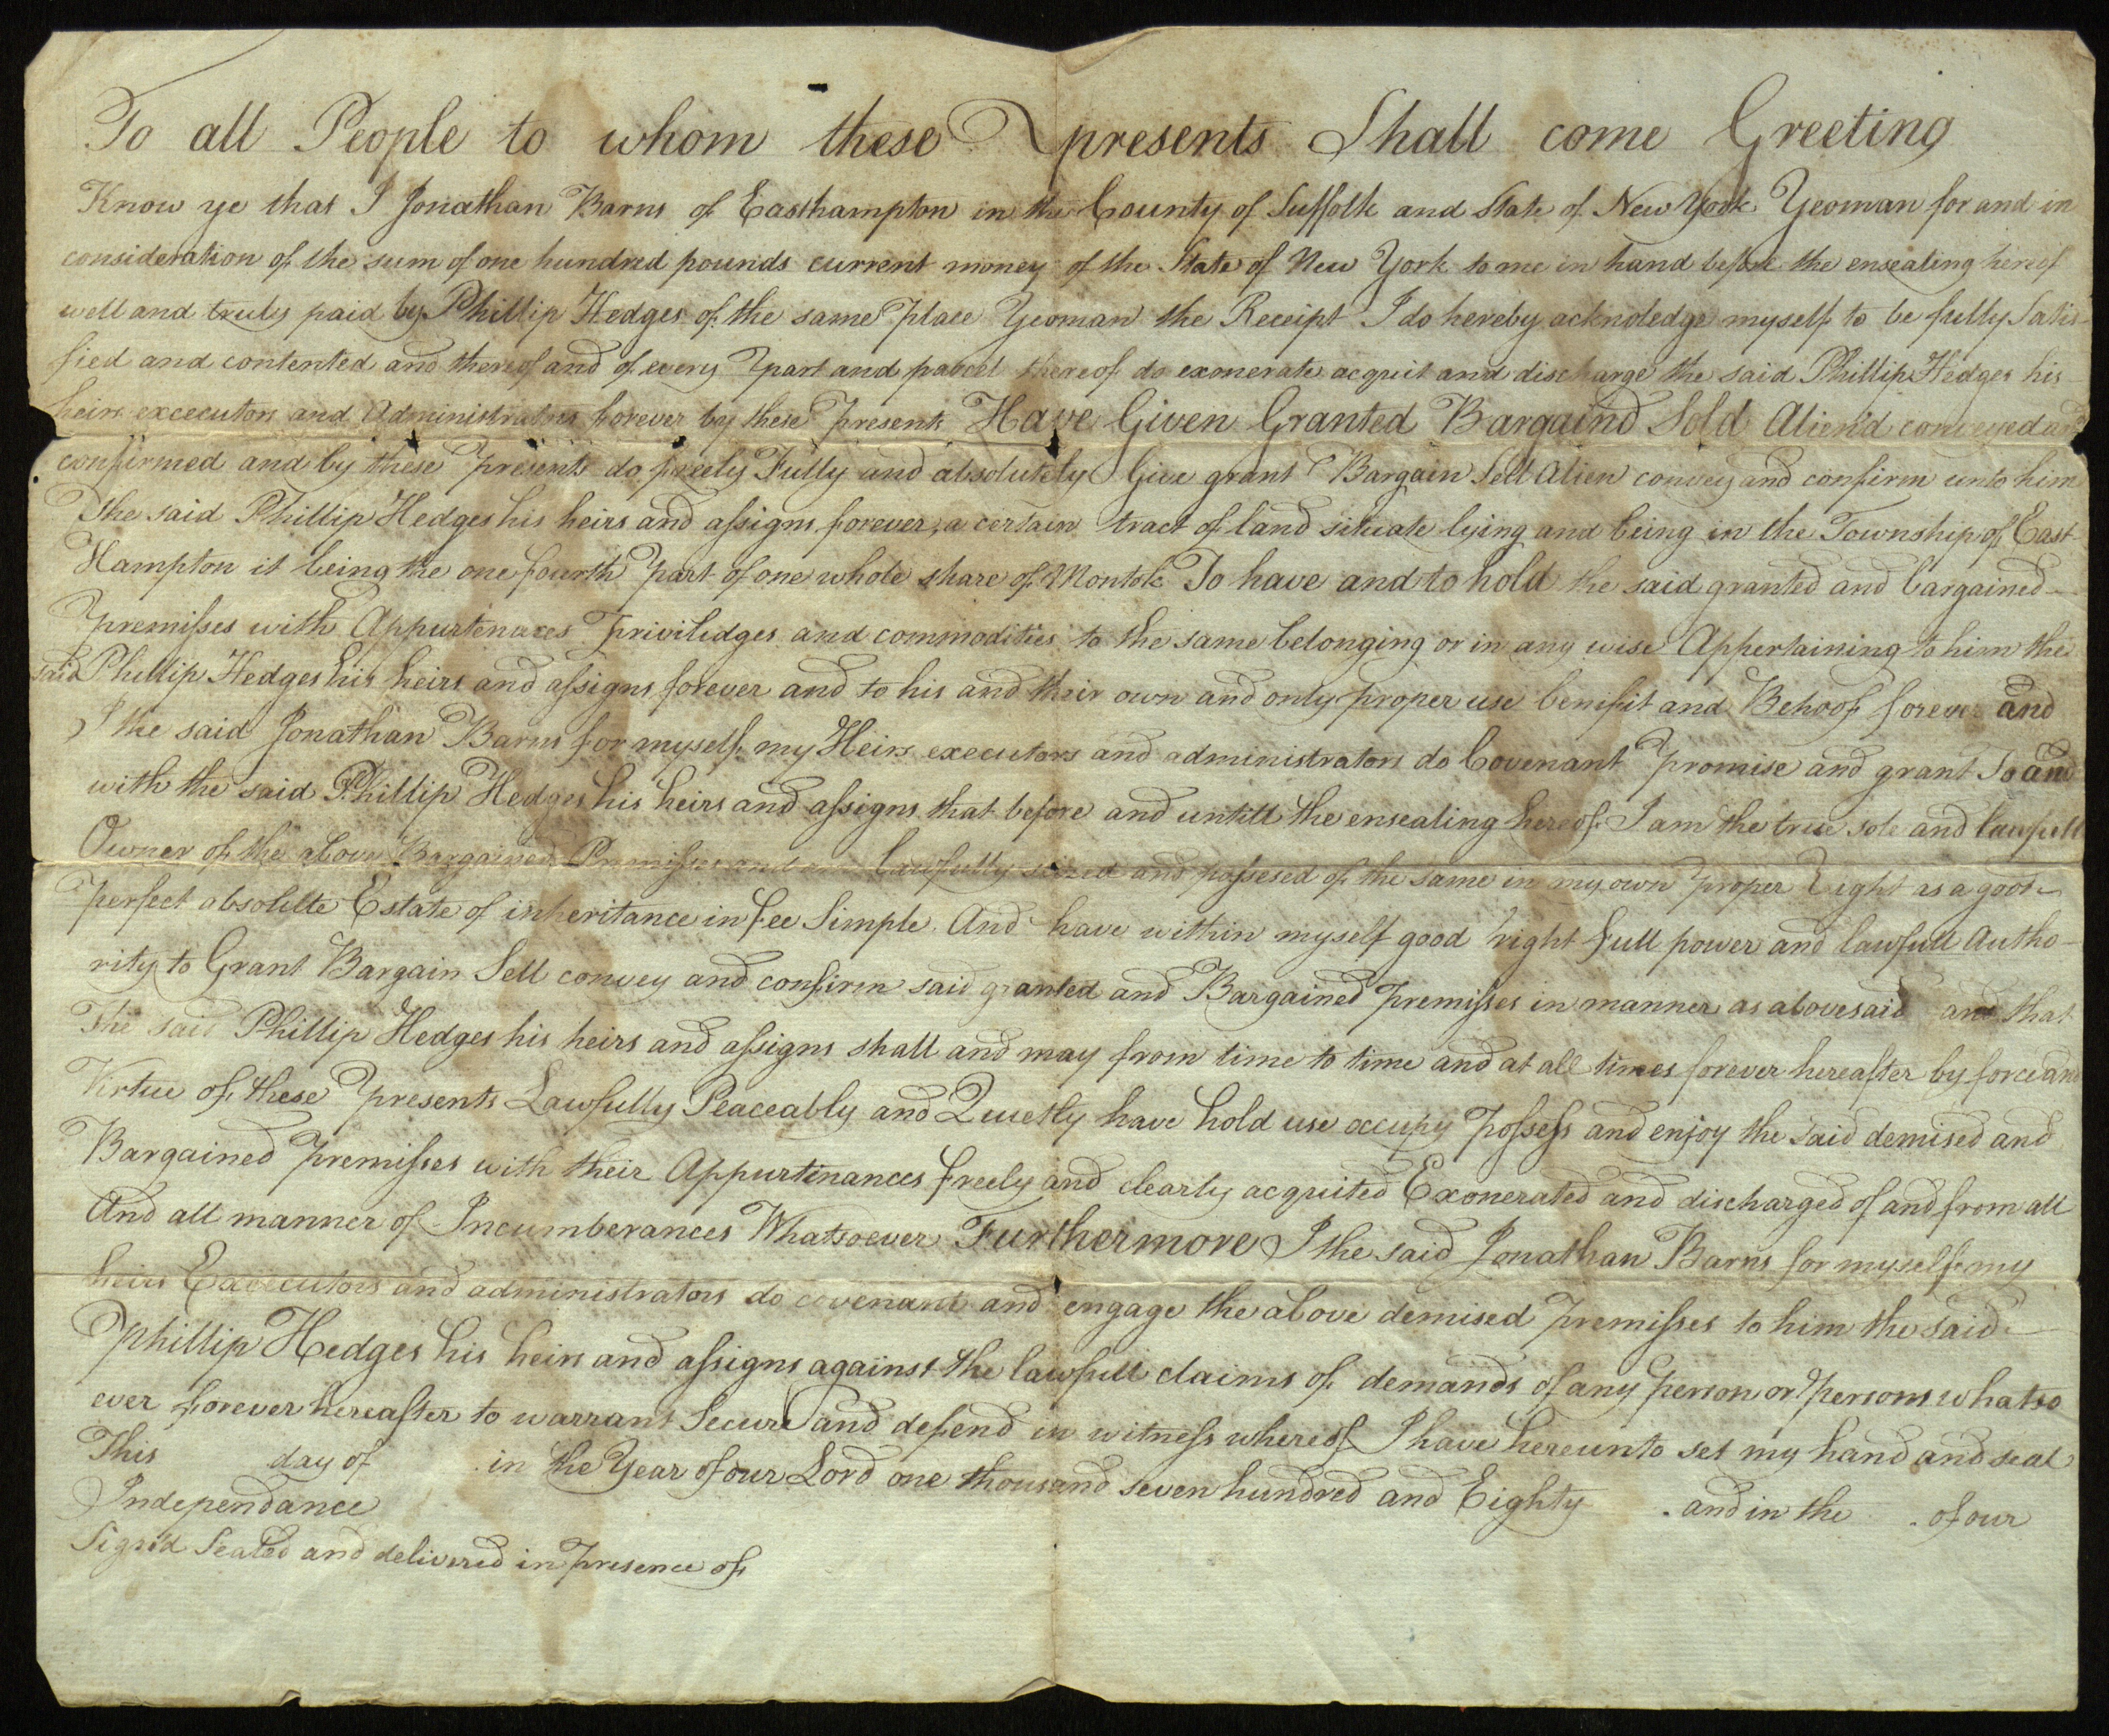 To all People to whom these presents Shall come Greeting
Know ye that I Jonathan Barns of Easthampton in the County of Suffolk and State of New York Yeoman for and in
consideration of the sum of one hundred pounds current money of the State of New York to me in hand before the ensealing hereof
well and truly paid by Phillip Hedges of the same place Yeoman the Receipt I do hereby acknoledge myself to be fully Satis-
fied and contented and thereof and of every part and parcel thereof do exonerate acquit and discharge the said Phillip Hedges his
heirs excecutors and Administrators forever by these presents Have Given Granted Bargaind Sold Alien'd conveyed and
confirmed and by these presents do freely Fully and absolutely Give grant Bargain Sell Alien convey and confirm unto him
The said Phillip Hedges his heirs and assigns forever, a certain tract of land situate lying and being in the Township of East-
Hampton it being the one fourth part of one whole share of Montok To have and to hold the said granted and bargained
premisses with Appurtenances priviledges and commodities to the same belonging or in any wise Appertaining to him the
said Phillip Hedges his heirs and assigns forever and to his and their own and only proper use benifit and Behoof forever and
I the said Jonathan Barns for myself my Heirs executors and administrators do Covenant promise and grant To and
with the said Phillip Hedges his heirs and assigns that before and untill the ensealing hereof I am the true sole and lawfull
Owner of the above Bargained Premisses and am lawfully seized and possesed of the same in my own proper Right as a good
perfect absolute Estate of inheritance in fee Simple. And have within myself good right full power and lawfull Autho-
rity to Grant Bargain Sell convey and confirm said granted and Bargained premisses in manner as abovesaid and that
The said Phillip Hedges his heirs and assigns shall and may from time to time and at all times forever hereafter by force and
Virtue of these presents Lawfully Peaceably and Quietly have hold use occupy possess and enjoy the said demised and
Bargained premisses with their Appurtinances freely and clearly acquited Exonerated and discharged of and from all
And all manner of Incumberances Whatsoever Furthermore I the said Jonathan Barns for myself my
heirs Excecutors and administrators do covenant and engage the above demised premisses to him the said
Phillip Hedges his heirs and assigns against the lawfull claims of demands of any person or persons whatso
ever forever hereafter to warrant Secure and defend in witness whereof I have hereunto set my hand and seal
This day of in the Year of our Lord one thousand seven hundred and Eighty and in the of our
Independance
Sign'd Sealed and delivered in presence of